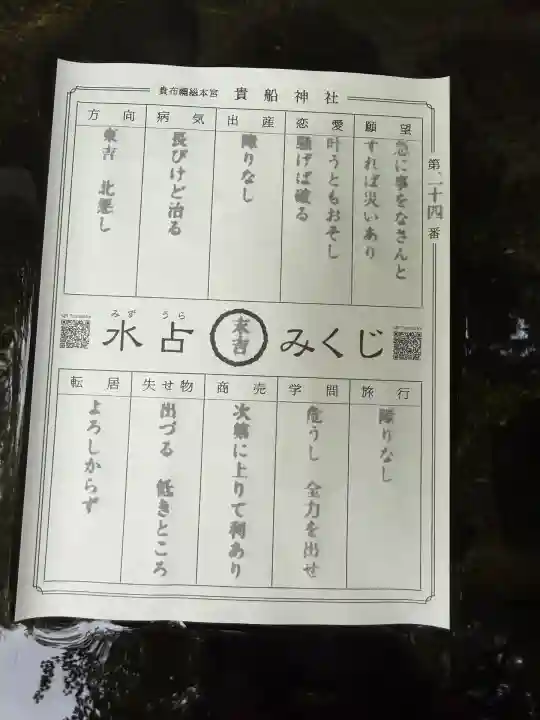 貴布禰総本宮 貴船神社
第二十四番
願望
急に事をなさんと
すれば災いあり
恋愛
叶うともおそし
騒げば破る
出産
障りなし
病気
長びけど治る
方向
東吉 北悪し
みず うら
水占 末吉 みくじ
旅行
障りなし
学問
危うし 全力を出せ
商売
次第に上りて利あり
失せ物
出づる 低きところ
転居
よろしからず